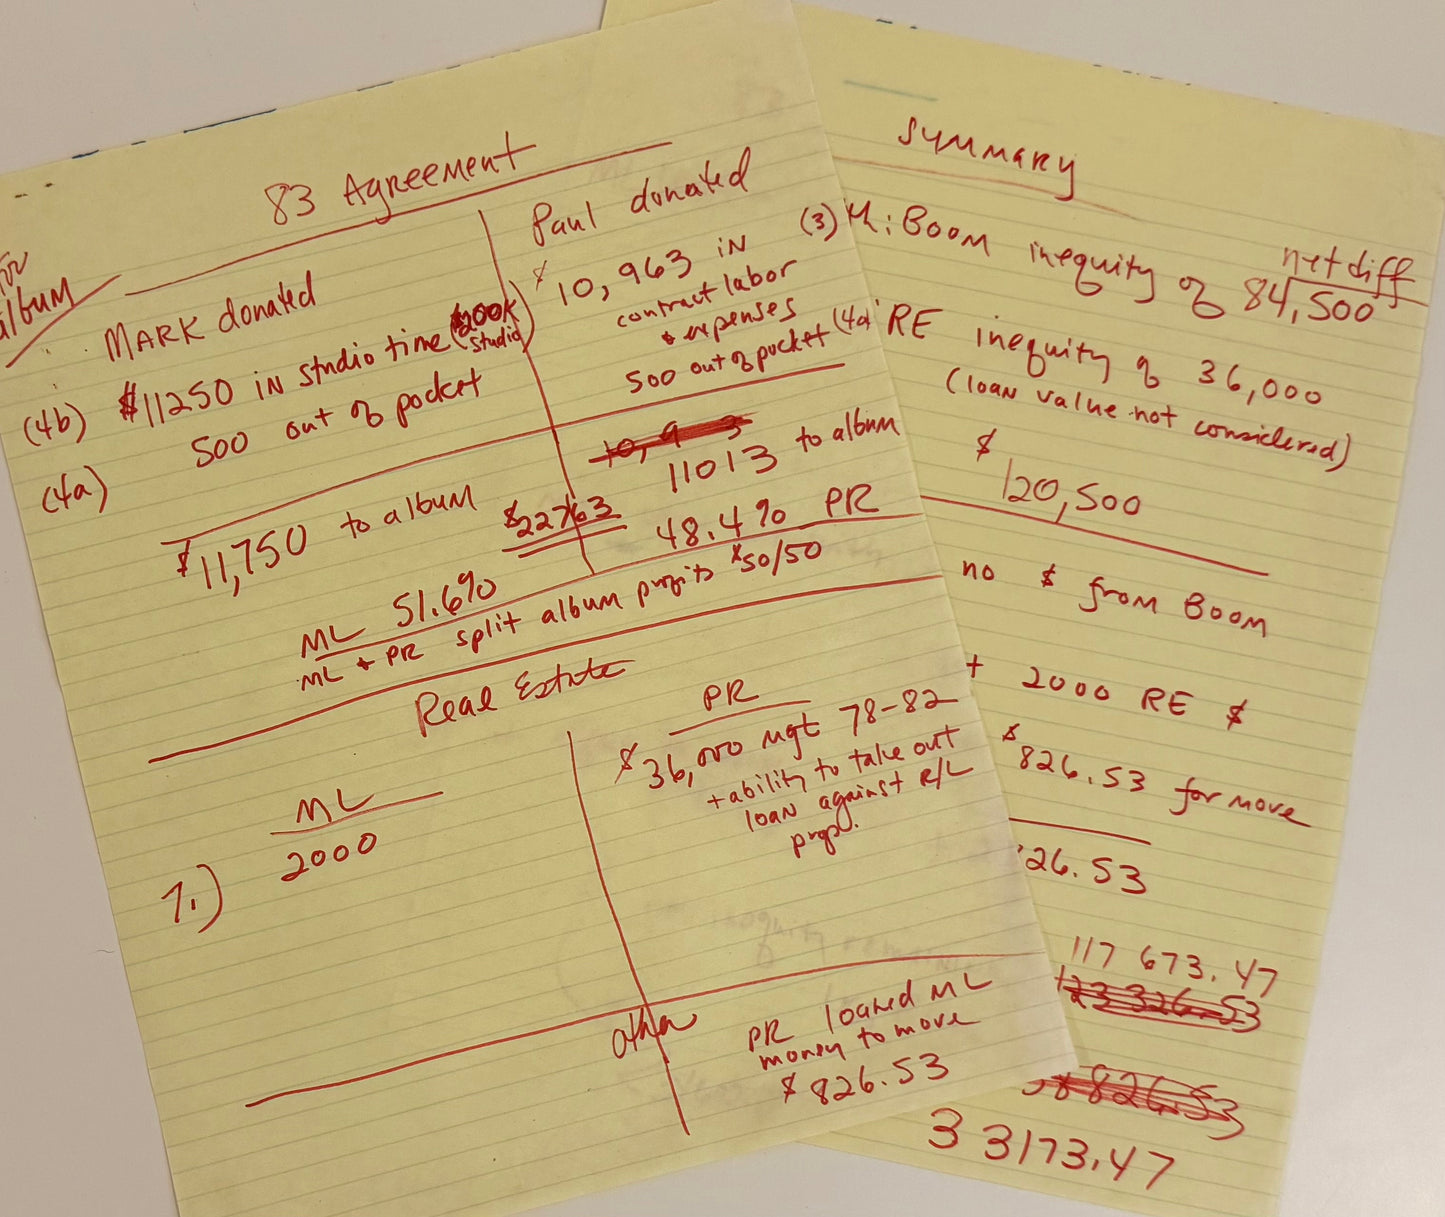 83 Agreement
for
album
MARK donated
(4b) $11250 in studio time ($200K
studio)
(4a) 500 out of pocket
$11,750 to album
ML 51.6%
Paul donated
$10,963 in
contract labor
& expenses
500 out of pocket
11013 to album
$22763
48.4% PR
ML + PR split album profits 50/50
Real Estate
ML
2000
1.)
PR
$36,000 mgt 78-82
+ ability to take out
loan against R/L
prop.
other
PR loaned ML
money to move
$826.53
Summary
net diff
(3) : BOOM inequity of 84,500
(4a) RE inequity of 36,000
(loan value not considered)
$
120,500
no $ from BOOM
2000 RE $
$826.53 for move
26.53
117 673.47
123 326.53
826.53
3 3173.47